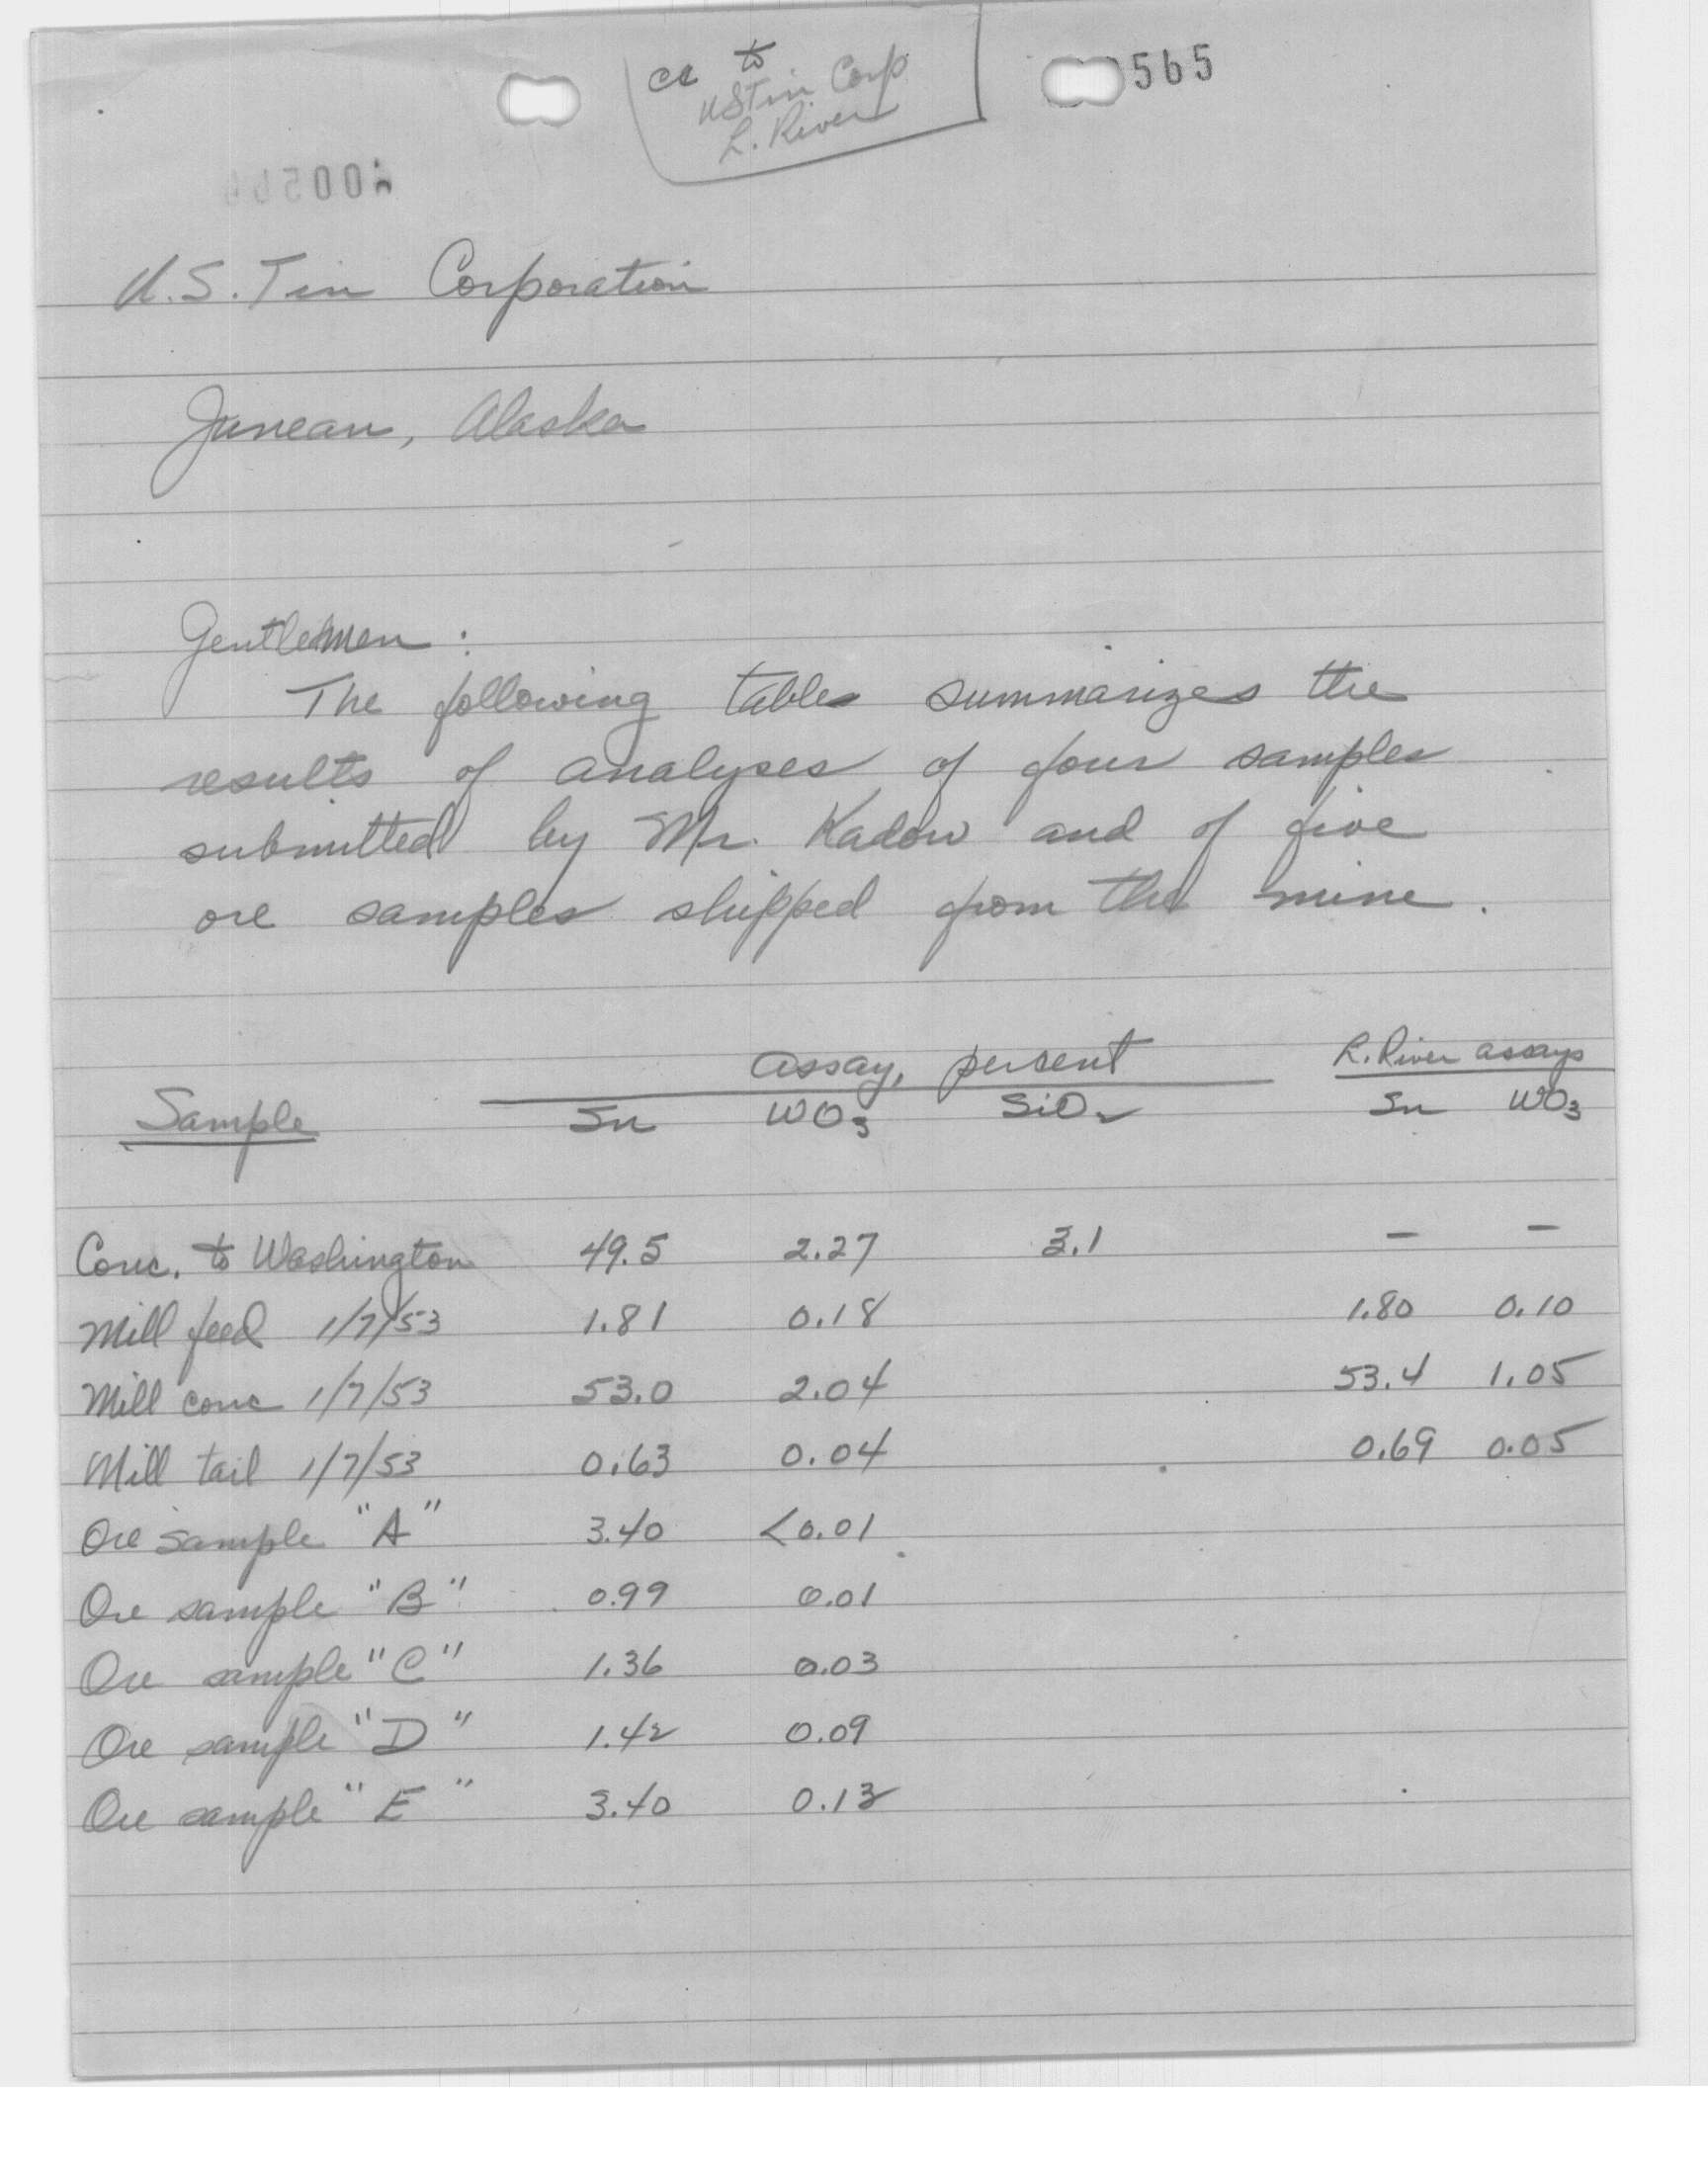 cc to
US Tin Corp
L. River
565
U.S. Tin Corporation
Juneau, Alaska
Gentlemen :
The following tables summarizes the
results of analyses of four samples
submitted by Mr. Kadow and of five
ore samples shipped from the mine.
Assay, persent R. River assays
Sample Sn WO3 SiO2 Sn WO3
Conc. to Washington 49.5 2.27 3.1 — —
Mill feed 1/7/53 1.81 0.18 1.80 0.10
Mill conc 1/7/53 53.0 2.04 53.4 1.05
Mill tail 1/7/53 0.63 0.04 0.69 0.05
Ore sample "A" 3.40 <0.01
Ore sample "B" 0.99 0.01
Ore sample "C" 1.36 0.03
Ore sample "D" 1.42 0.09
Ore sample "E" 3.40 0.13